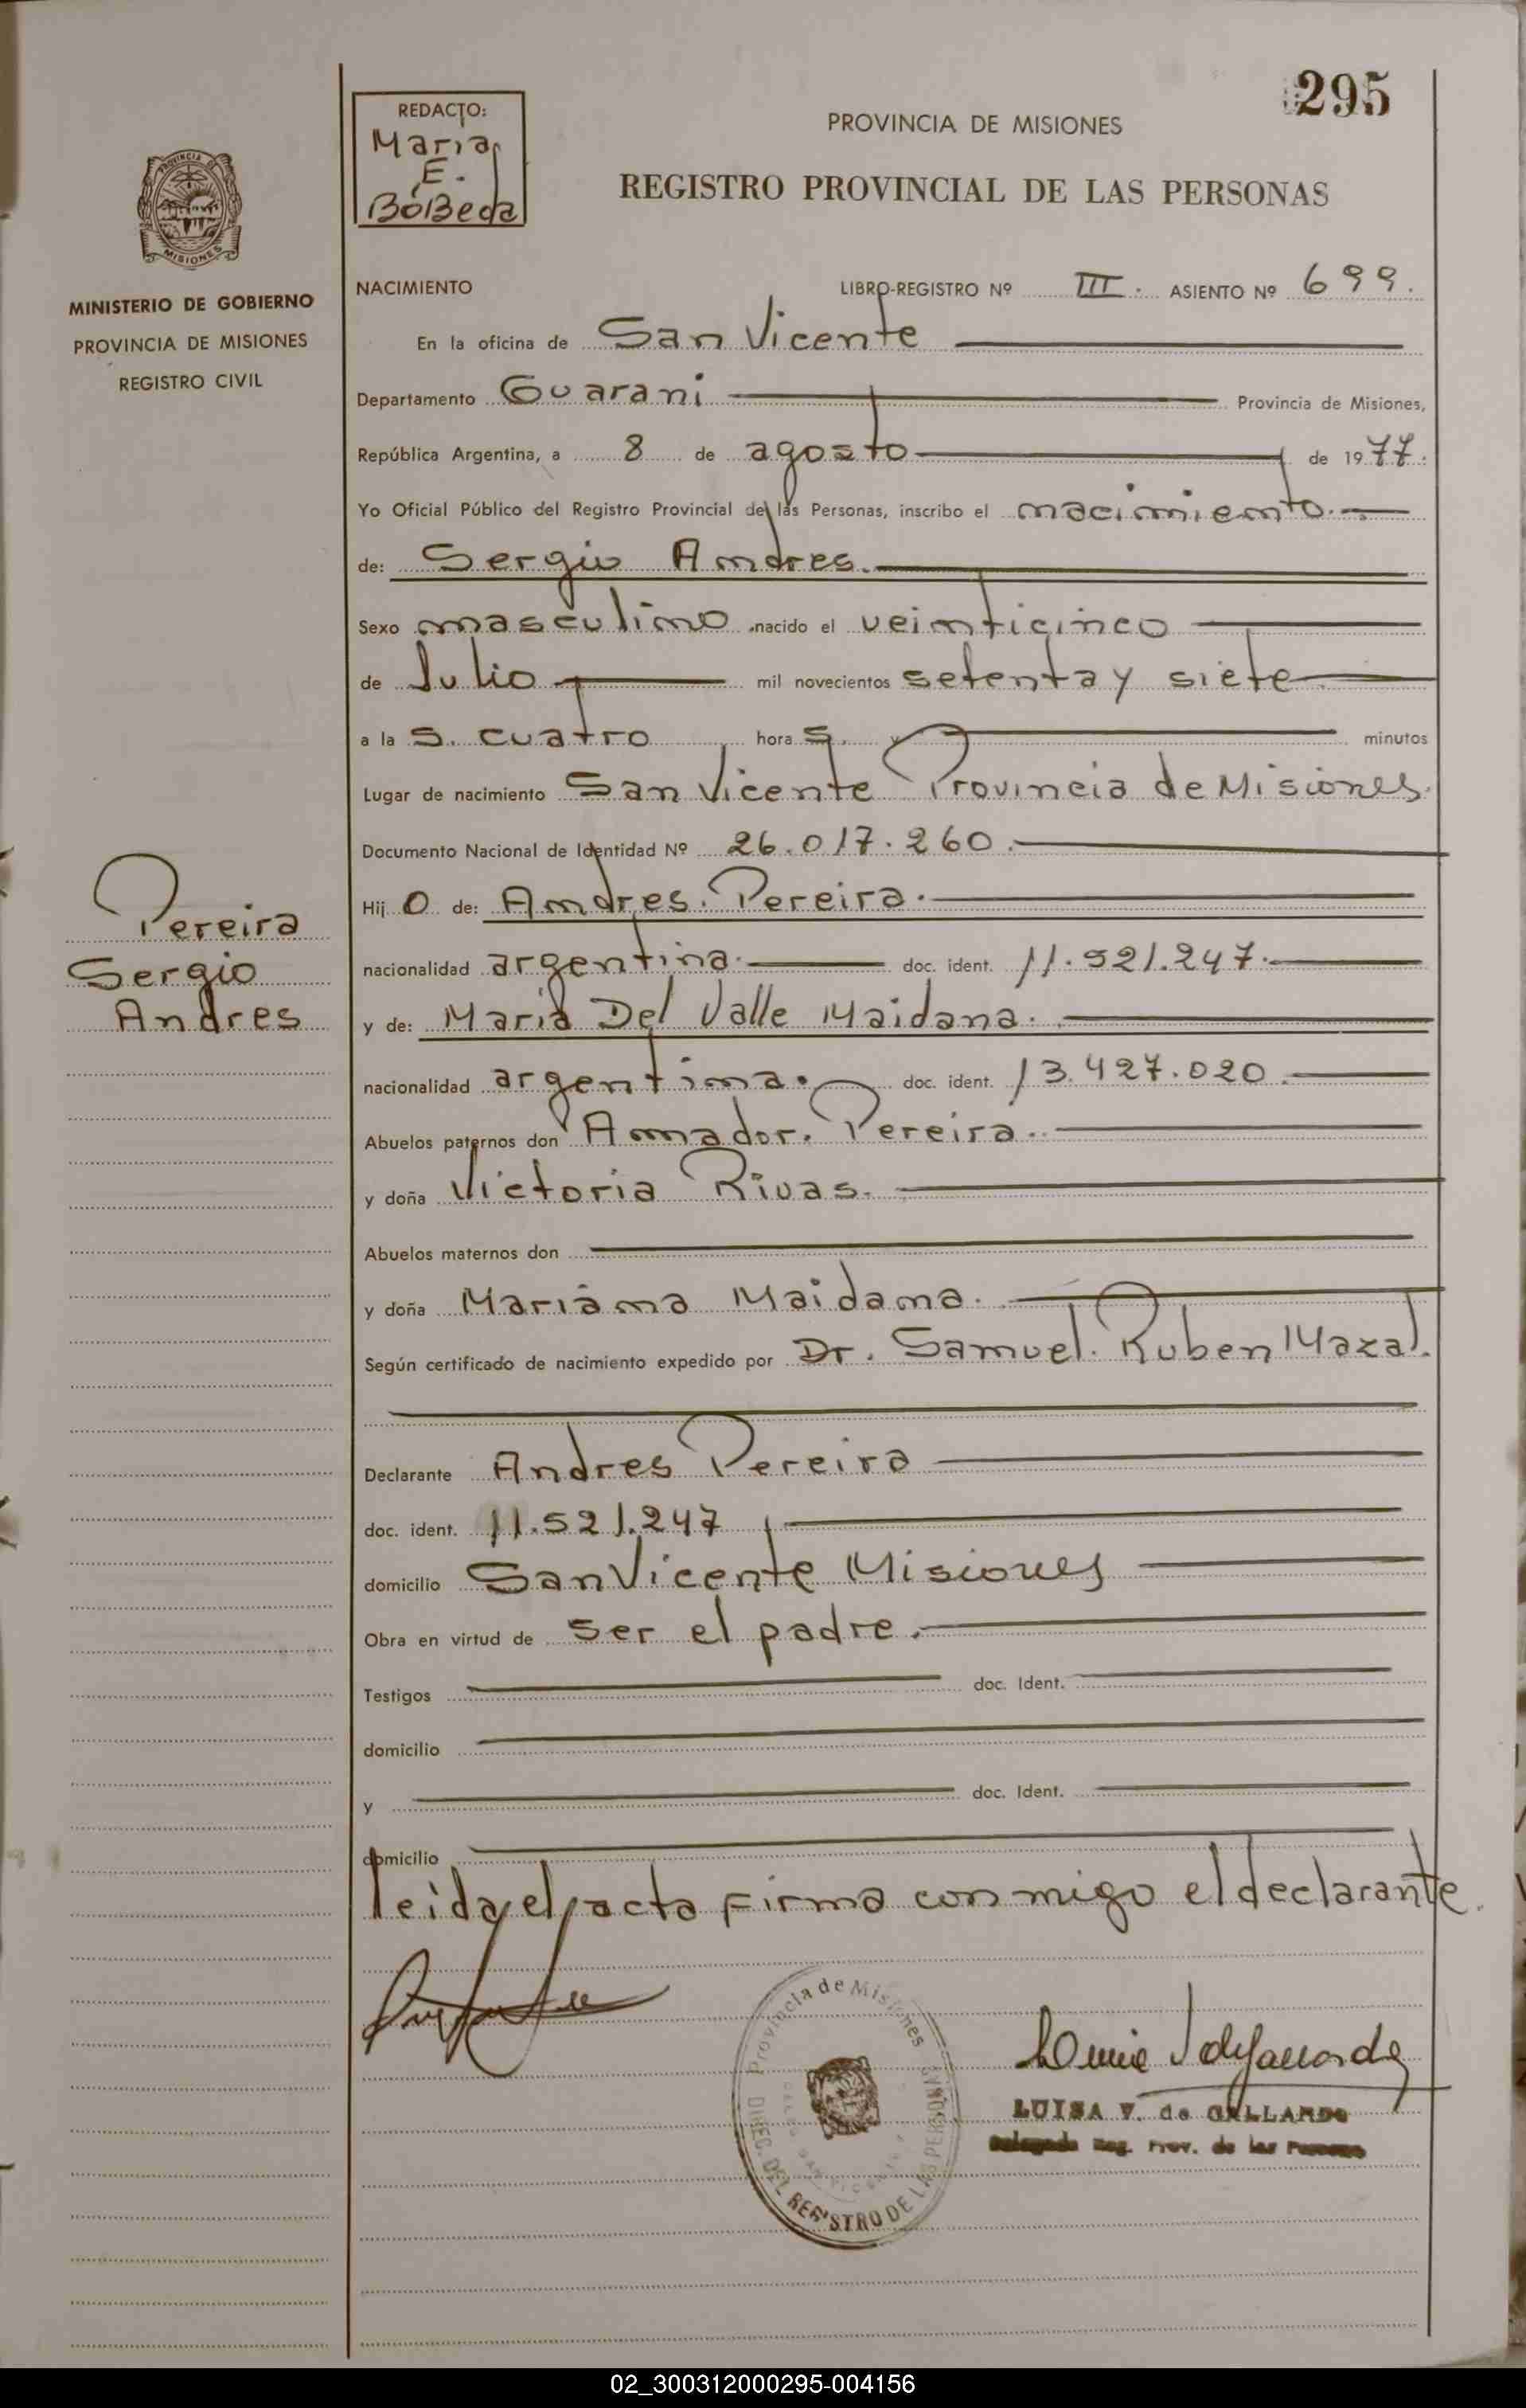 295
REDACTO:
Maria
E.
BóBeda
PROVINCIA DE MISIONES
REGISTRO PROVINCIAL DE LAS PERSONAS
PROVINCIA DE
MISIONES
MINISTERIO DE GOBIERNO
PROVINCIA DE MISIONES
REGISTRO CIVIL
NACIMIENTO LIBRO-REGISTRO Nº III. ASIENTO Nº 699.
En la oficina de San Vicente
Departamento Guarani Provincia de Misiones,
República Argentina, a 8 de agosto de 1977.
Yo Oficial Público del Registro Provincial de las Personas, inscribo el nacimiento.
de: Sergio Andres.
Sexo masculino nacido el veinticinco
de Julio mil novecientos setenta y siete
a la s. cuatro hora s. y minutos
Lugar de nacimiento San Vicente Provincia de Misiones.
Documento Nacional de Identidad Nº 26.017.260.
Hij o de: Andres. Pereira.
nacionalidad argentina. doc. ident. 11.521.247.
y de: Maria Del Valle Maidana.
nacionalidad argentina. doc. ident. 13.427.020.
Abuelos paternos don Amador. Pereira.
y doña Victoria Rivas.
Abuelos maternos don
y doña Mariana Maidana.
Según certificado de nacimiento expedido por Dr. Samuel. Ruben Mazal.
Declarante Andres Pereira
doc. ident. 11.521.247
domicilio San Vicente Misiones
Obra en virtud de ser el padre.
Testigos doc. Ident.
domicilio
y doc. Ident.
domicilio
leida el acta firma con migo el declarante.
Pereira
Sergio
Andres
Provincia de Misiones
DIREC. DEL REGISTRO DE LAS PERSONAS
LUISA V. de GALLARDO
Delegada Reg. Prov. de las Personas
02_300312000295-004156